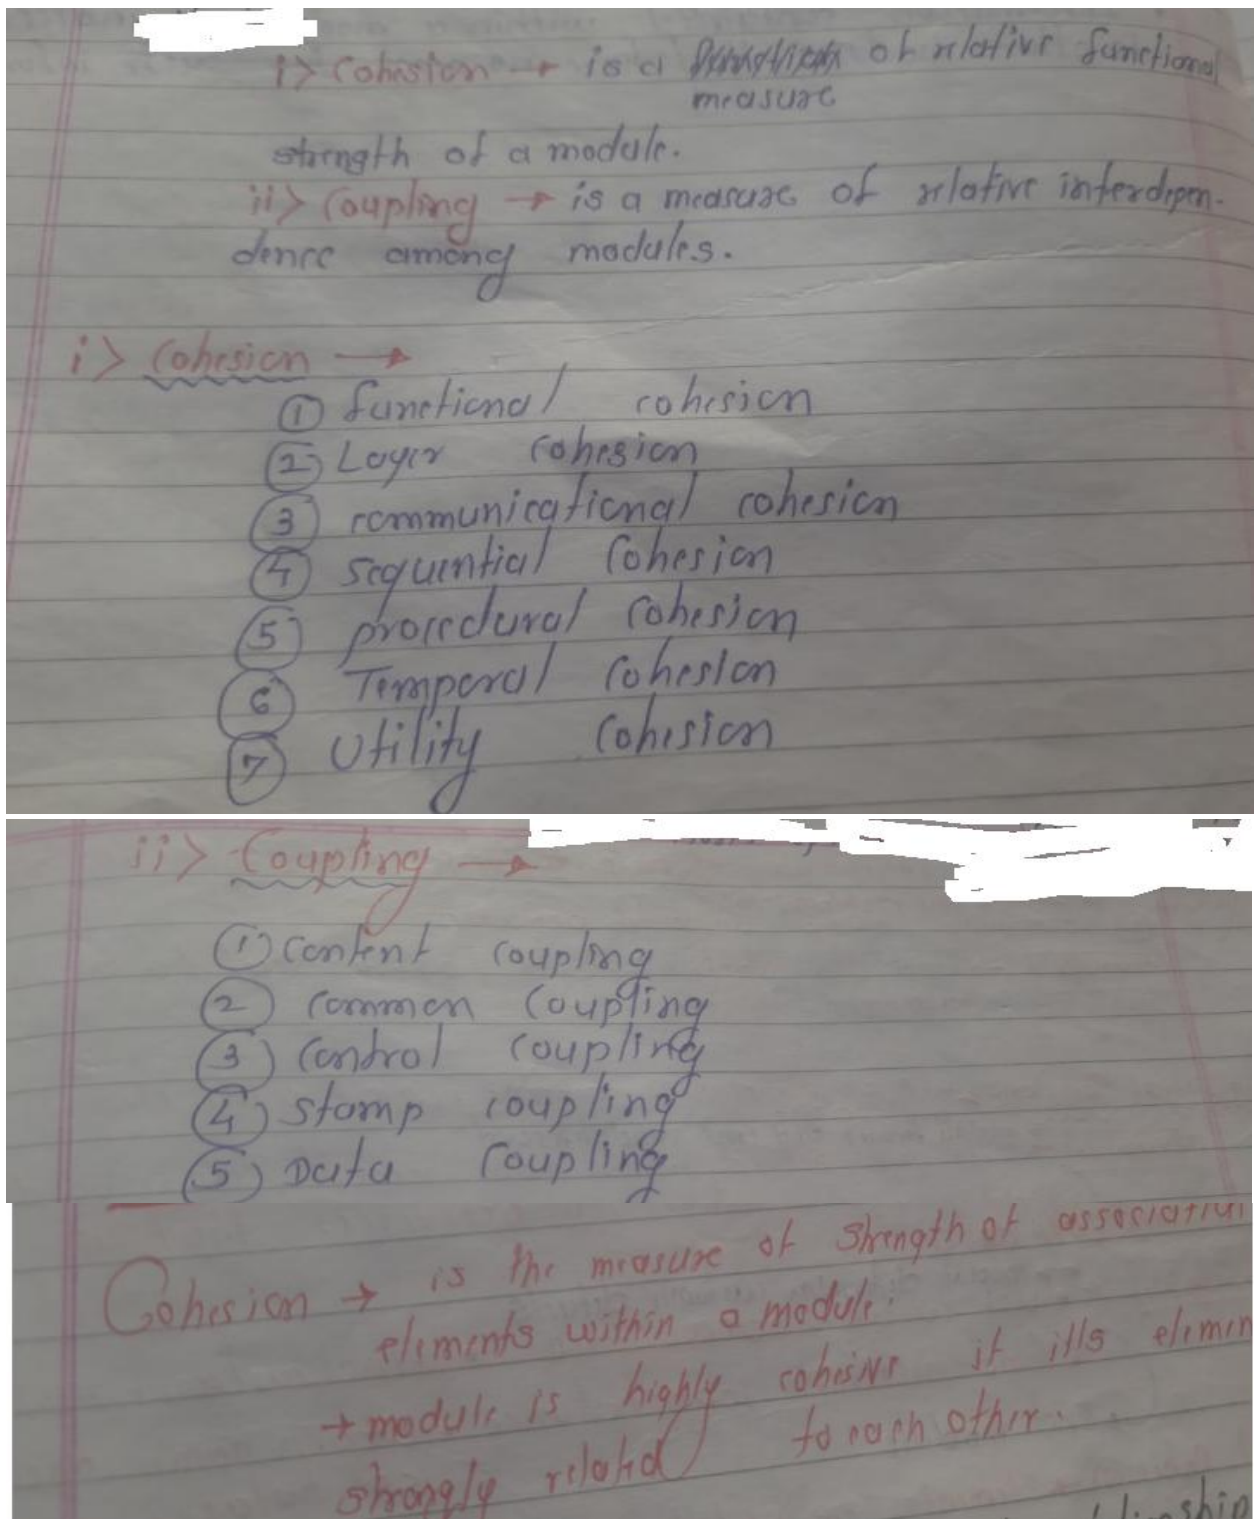 i> Cohesion → is a of relative functional
measure
strength of a module.
ii> Coupling → is a measure of relative interdepen-
dence among modules.
i> Cohesion →
① functional cohesion
② Layer cohesion
③ communicational cohesion
④ sequential cohesion
⑤ procedural cohesion
⑥ Temporal cohesion
⑦ Utility cohesion
ii> Coupling →
① Content coupling
② Common coupling
③ Control coupling
④ stamp coupling
⑤ Data coupling
Cohesion → is the measure of strength of
elements within a module.
→ module is highly cohesive if it's
strongly related to each other.